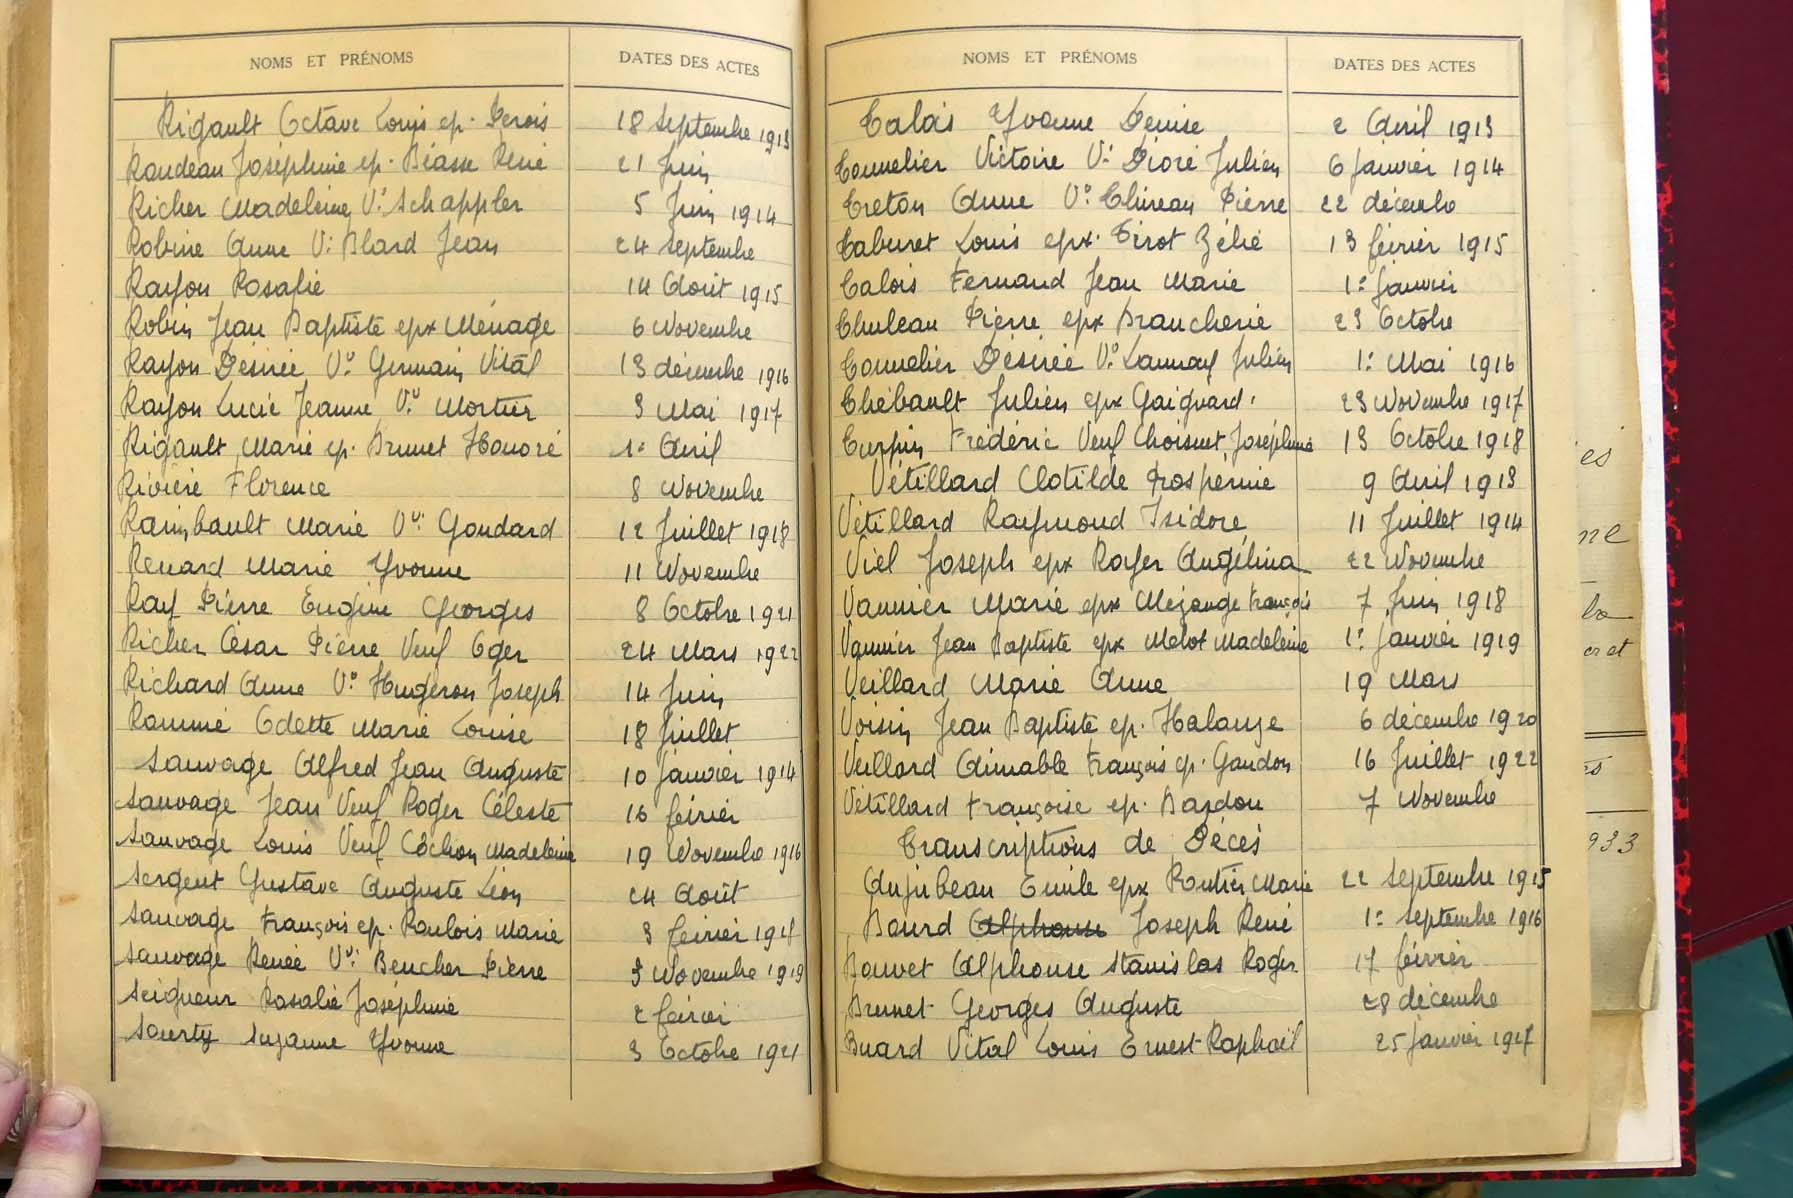 NOMS ET PRÉNOMS DATES DES ACTES
Rigault Octave Louis ep. Derois 18 Septembre 1913
Raudeau Joséphine ep. Béasse René 21 Juin
Richer Madeleine Vve Schappler 5 Juin 1914
Robine Anne Vve Blard Jean 24 Septembre
Rayon Rosalie 14 Août 1915
Robin Jean Baptiste epx Ménage 6 Novembre
Rayon Désirée Vve Germain Vital 13 décembre 1916
Rayon Lucie Jeanne Vve Mortier 3 Mai 1917
Rigault Marie ep. Brunet Honoré 1er Avril
Rivière Florence 8 Novembre
Raimbault Marie Vve Goudard 12 Juillet 1918
Renard Marie Yvonne 11 Novembre
Ray Pierre Eugène Georges 8 Octobre 1921
Richer César Pierre Veuf Oger 24 Mars 1922
Richard Anne Vve Hugeron Joseph 14 Juin
Rammé Odette Marie Louise 18 Juillet
Sauvage Alfred Jean Auguste 10 Janvier 1914
Sauvage Jean Veuf Roger Céleste 16 février
Sauvage Louis Veuf Cochon Madeleine 19 Novembre 1916
Sergent Gustave Auguste Léon 24 Août
Sauvage François ep. Roulois Marie 3 février
Sauvage Renée Vve Beucher Pierre 3 Novembre 1919
Seigneur Rosalie Joséphine 2 février
Suzanne Yvonne 3 Octobre 1921
NOMS ET PRÉNOMS DATES DES ACTES
Talois Yvonne Denise 2 Avril 1913
Tonnelier Victoire Vve Dioré Julien 6 Janvier 1914
Treton Anne Vve Chireau Pierre 22 décembre
Taburet Louis epx. Tirot Zélie 13 février 1915
Talois Fernand Jean Marie 1er Janvier
Thuleau Pierre epx Brancherie 23 Octobre
Tonnelier Désirée Vve Launay Julien 1er Mai 1916
Thébault Julien epx Gaignard. 23 Novembre 1917
Turpin Frédéric Veuf Choisnet Joséphine 13 Octobre 1918
Vétillard Clotilde Prospérine 9 Avril 1913
Vétillard Raymond Isidore 11 Juillet 1914
Viel Joseph epx Royer Angélina 22 Novembre
Vannier Marie epx Mézange François 7 Juin 1918
Vannier Jean Baptiste epx Melot Madeleine 1er Janvier 1919
Veillard Marie Anne 19 Mars
Voisin Jean Baptiste ep. Halouze 6 décembre 1920
Veillard Aimable François ep. Gandon 16 Juillet 1922
Vétillard Françoise ep. Bardou 7 Novembre
Transcriptions de Décès
Anjubeau Emile epx Routier Marie 22 Septembre 1915
Bourd Alphonse Joseph René 1er Septembre 1916
Bouvet Alphonse Stanislas Roger 17 février
Brunet Georges Auguste 28 décembre
Buard Vital Louis Ernest Raphaël 25 Janvier 1917
933